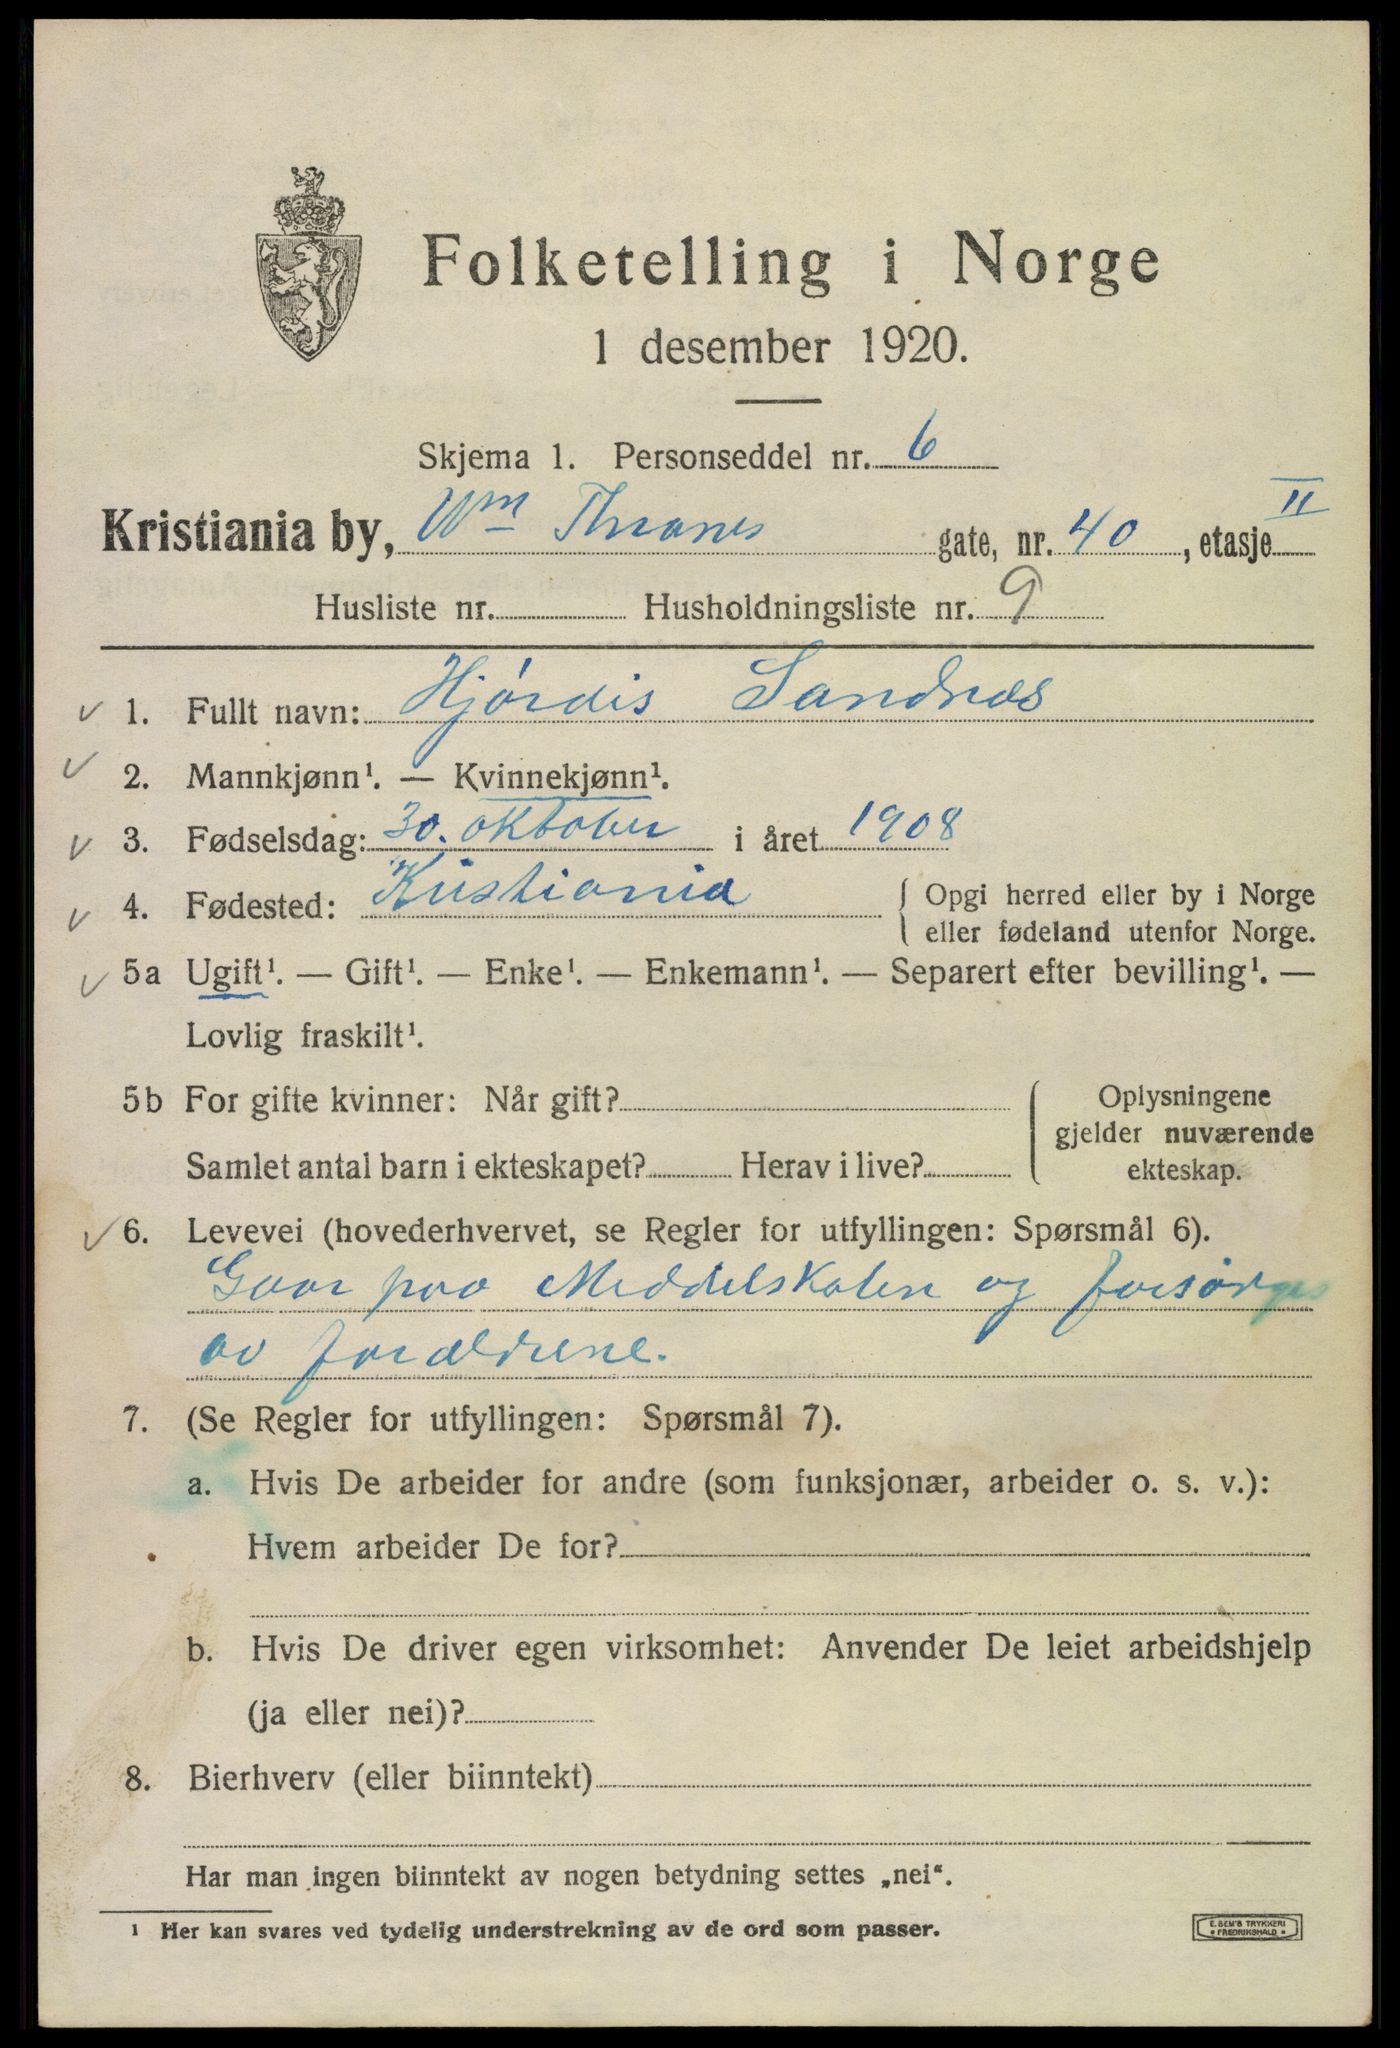 Folketelling i Norge
1 desember 1920.
Skjema 1. Personseddel nr. 6
Kristiania by, Wm Thranes gate, nr. 40, etasje II
Husliste nr. Husholdningsliste nr. 9
1. Fullt navn: Hjórdis Sandnæs
2. Mannkjønn¹. — Kvinnekjønn¹.
3. Fødselsdag: 30. oktober i året 1908
4. Fødested: Kristiania { Opgi herred eller by i Norge
eller fødeland utenfor Norge.
5a Ugift¹. — Gift¹. — Enke¹. — Enkemann¹. — Separert efter bevilling¹. —
Lovlig fraskilt¹.
5b For gifte kvinner: Når gift?
Samlet antal barn i ekteskapet? Herav i live?
Oplysningene
gjelder nuværende
ekteskap.
6. Levevei (hovederhvervet, se Regler for utfyllingen: Spørsmål 6).
Gaar paa Middelskolen og forsørges
av forældrene.
7. (Se Regler for utfyllingen: Spørsmål 7).
a. Hvis De arbeider for andre (som funksjonær, arbeider o. s. v.):
Hvem arbeider De for?
b. Hvis De driver egen virksomhet: Anvender De leiet arbeidshjelp
(ja eller nei)?
8. Bierhverv (eller biinntekt)
Har man ingen biinntekt av nogen betydning settes „nei“.
¹ Her kan svares ved tydelig understrekning av de ord som passer.
E. SEM'S TRYKKERI
* FREDRIKSHALD *